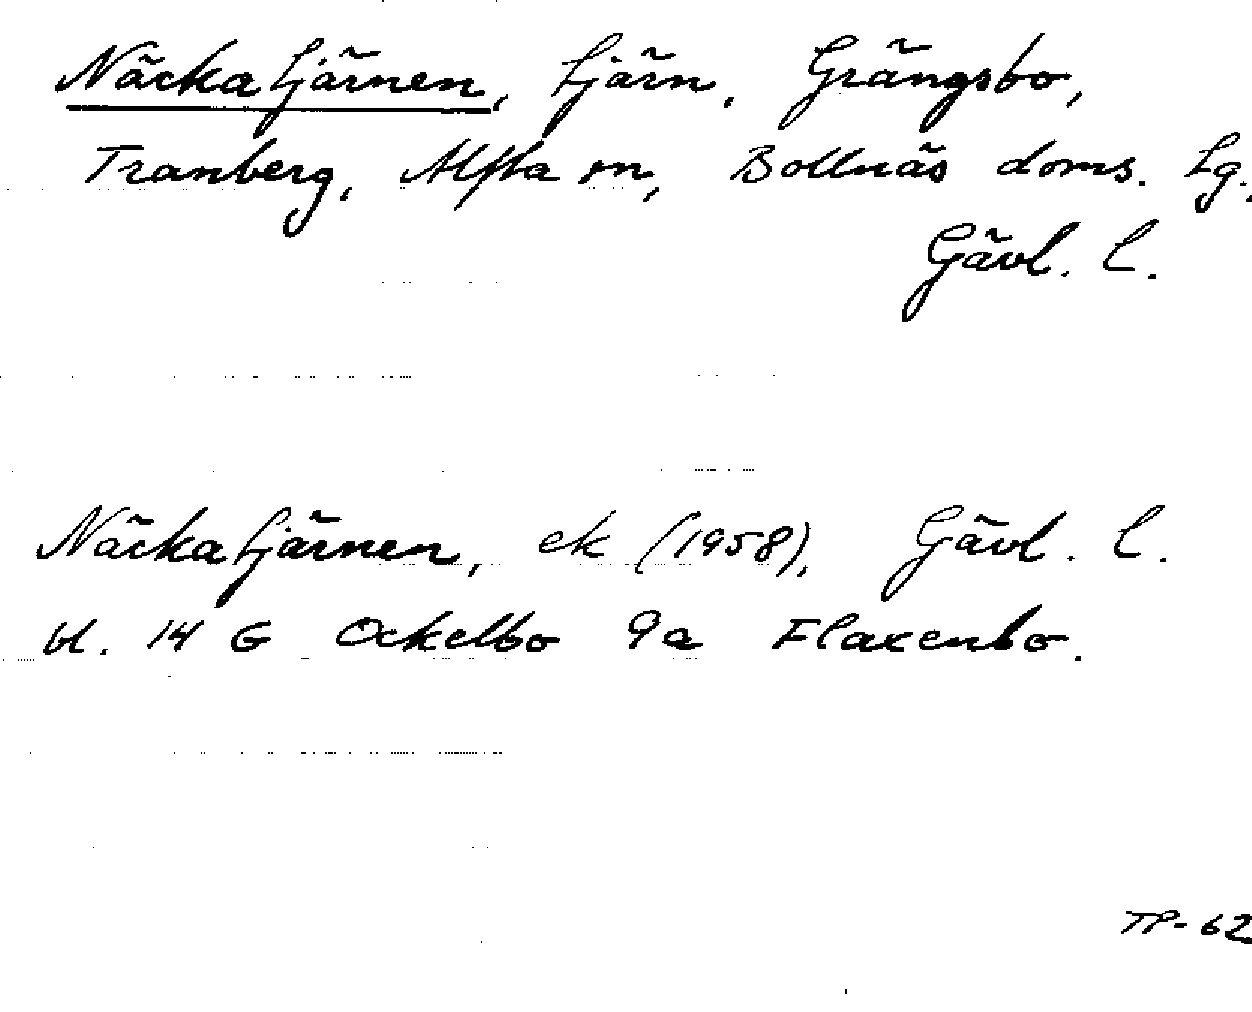 Näckatjärnen, tjärn, Grängsbo,
Tranberg, Alfta sn, Bollnäs doms. Lg.,
Gävl. l.
Näckatjärnen, ek (1958), Gävl. l.
bl. 14 G Ockelbo 9a Flaxenbo.
TP-62